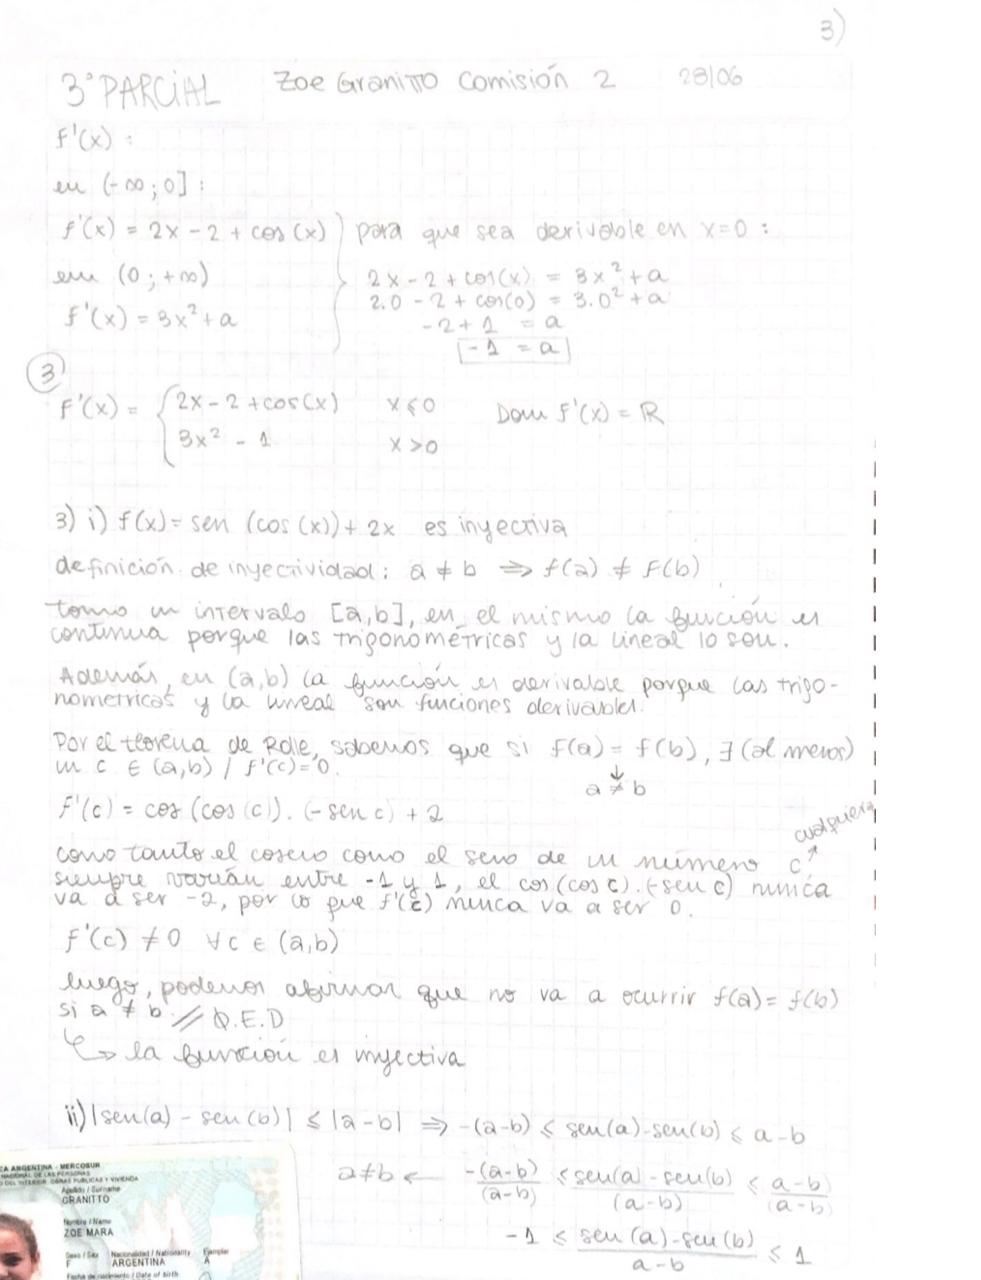 3)
3° PARCIAL Zoe Granitto Comisión 2 28/06
f'(x) :
en (-∞ ; 0] :
f'(x) = 2x - 2 + cos (x) para que sea derivable en x=0 :
en (0 ; +∞) 2x - 2 + cos(x) = 3x² + a
2.0 - 2 + cos(0) = 3.0² + a
f'(x) = 3x² + a -2 + 1 = a
-1 = a
3
f'(x) = { 2x - 2 + cos(x) x ≤ 0 Dom f'(x) = ℝ
3x² - 1 x > 0
3) i) f(x) = sen (cos (x)) + 2x es inyectiva
definición de inyectividad: a ≠ b ⇒ f(a) ≠ f(b)
tomo un intervalo [a,b], en el mismo la función es
continua porque las trigonométricas y la lineal lo son.
Además, en (a,b) la función es derivable porque las trigo-
nometricas y la lineal son funciones derivables.
Por el teorema de Rolle, sabemos que si f(a) = f(b), ∃ (al menos)
un c ∈ (a,b) / f'(c) = 0.
↓
a ≠ b
f'(c) = cos (cos (c)). (-sen c) + 2
cualquiera
como tanto el coseno como el seno de un número c ↗
siempre varían entre -1 y 1, el cos (cos c). (-sen c) nunca
va a ser -2, por lo que f'(c) nunca va a ser 0.
f'(c) ≠ 0 ∀c ∈ (a,b)
luego, podemos afirmar que no va a ocurrir f(a) = f(b)
si a ≠ b. // Q.E.D
↳ la función es inyectiva
ii) |sen(a) - sen(b)| ≤ |a-b| ⇒ -(a-b) ≤ sen(a)-sen(b) ≤ a-b
a≠b ← -(a-b)/(a-b) ≤ sen(a) - sen(b)/(a-b) ≤ a-b/(a-b)
-1 ≤ sen(a)-sen(b)/a-b ≤ 1
CA ARGENTINA - MERCOSUR
NACIONAL DE LAS PERSONAS
DEL INTERIOR, OBRAS PUBLICAS Y VIVIENDA
Apellido / Surname
GRANITTO
Nombre / Name
ZOE MARA
Sexo / Sex Nacionalidad / Nationality Ejemplar
F ARGENTINA A
Fecha de nacimiento / Date of birth